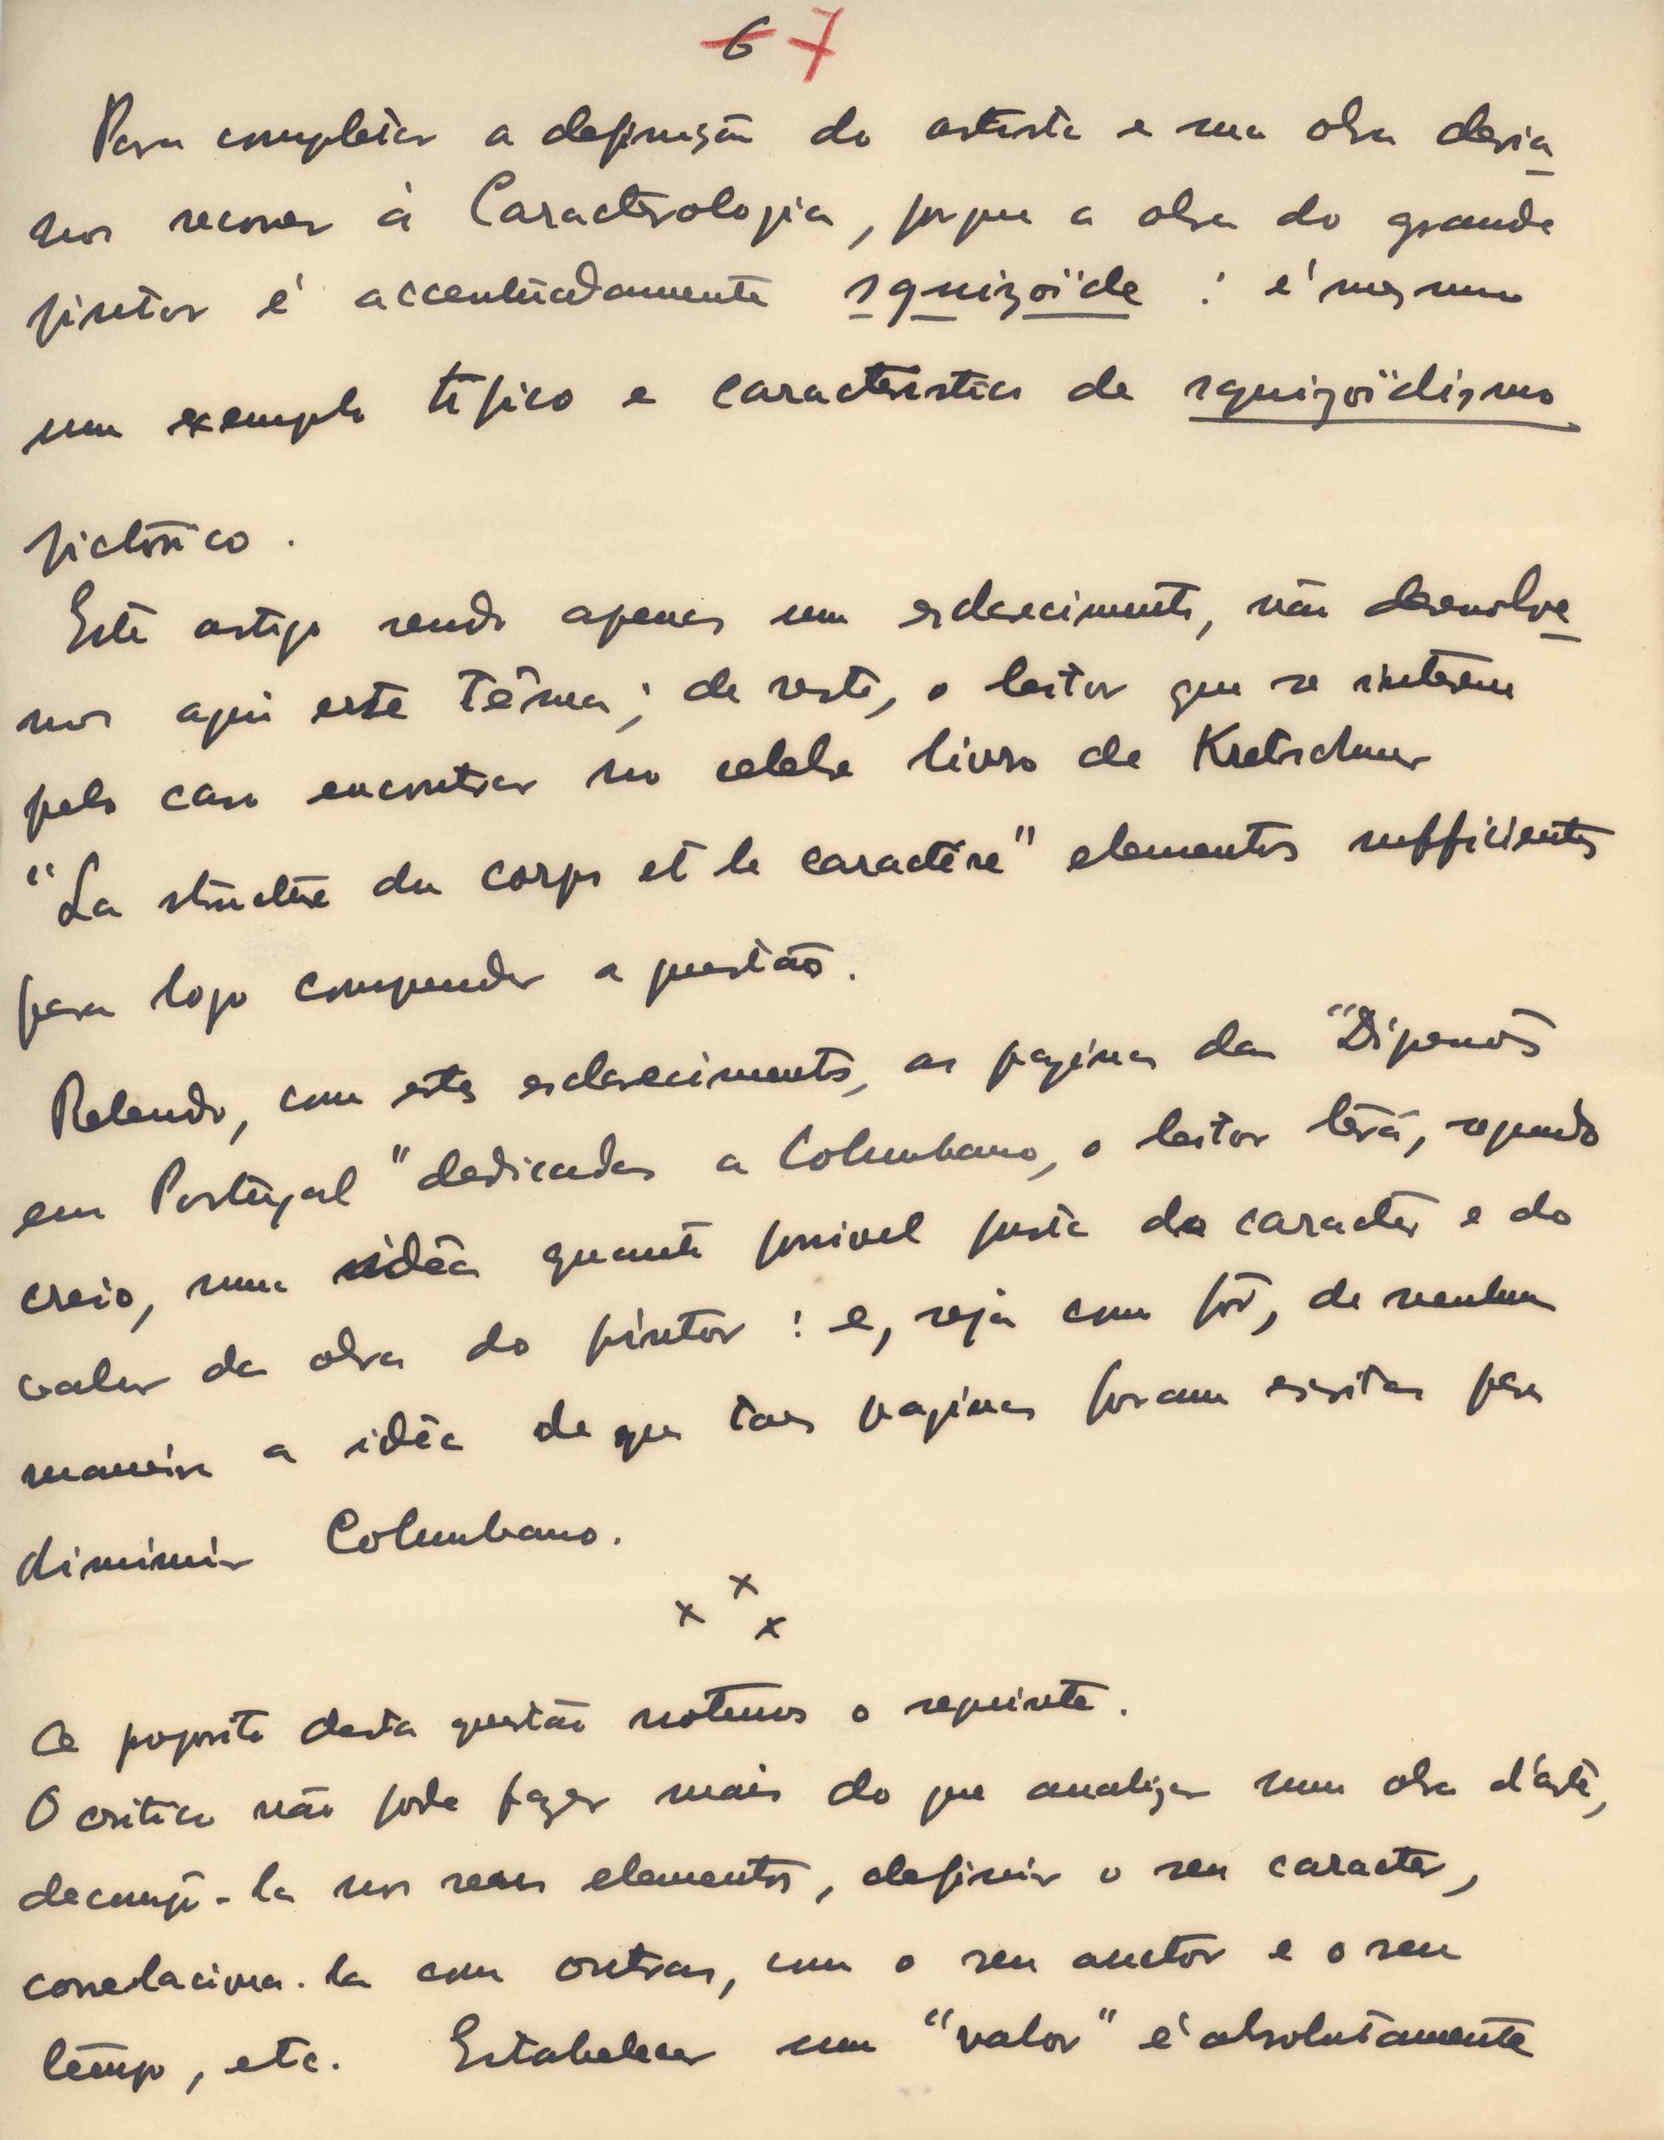 6 7
Para completar a definição do artista e sua obra devia
mos recorrer á Caracterologia, porque a obra do grande
pintor é accentuadamente squizoïde : é mesmo
um exemplo tipico e caracteristico de squizoïdismo
pictórico.
Este artigo sendo apenas um esclarecimento, não desenvolve
mos aqui este têma; de resto, o leitor que se interesse
pelo caso encontrar no celebre livro de Kretschmer
"La structure du corps et le caractère" elementos sufficientes
para logo comprender a questão.
Relendo, com estes esclarecimentos, as paginas da
em Portugal" dedicadas a Columbano, o leitor terá, segundo
creio, uma idéa quanto possivel justa do caracter e do
valor da obra do pintor : e, seja como fôr, de nenhuma
maneira a idéa de que taes paginas foram escritas para
diminuir Columbano.
x x x
A proposito desta questão notemos o seguinte.
O critico não pode fazer mais do que analizar uma obra d'arte,
decompô-la nos seus elementos, definir o seu caracter,
correlaciona-la com outras, com o seu auctor e o seu
tempo, etc. Estabelecer um "valor" é absolutamente